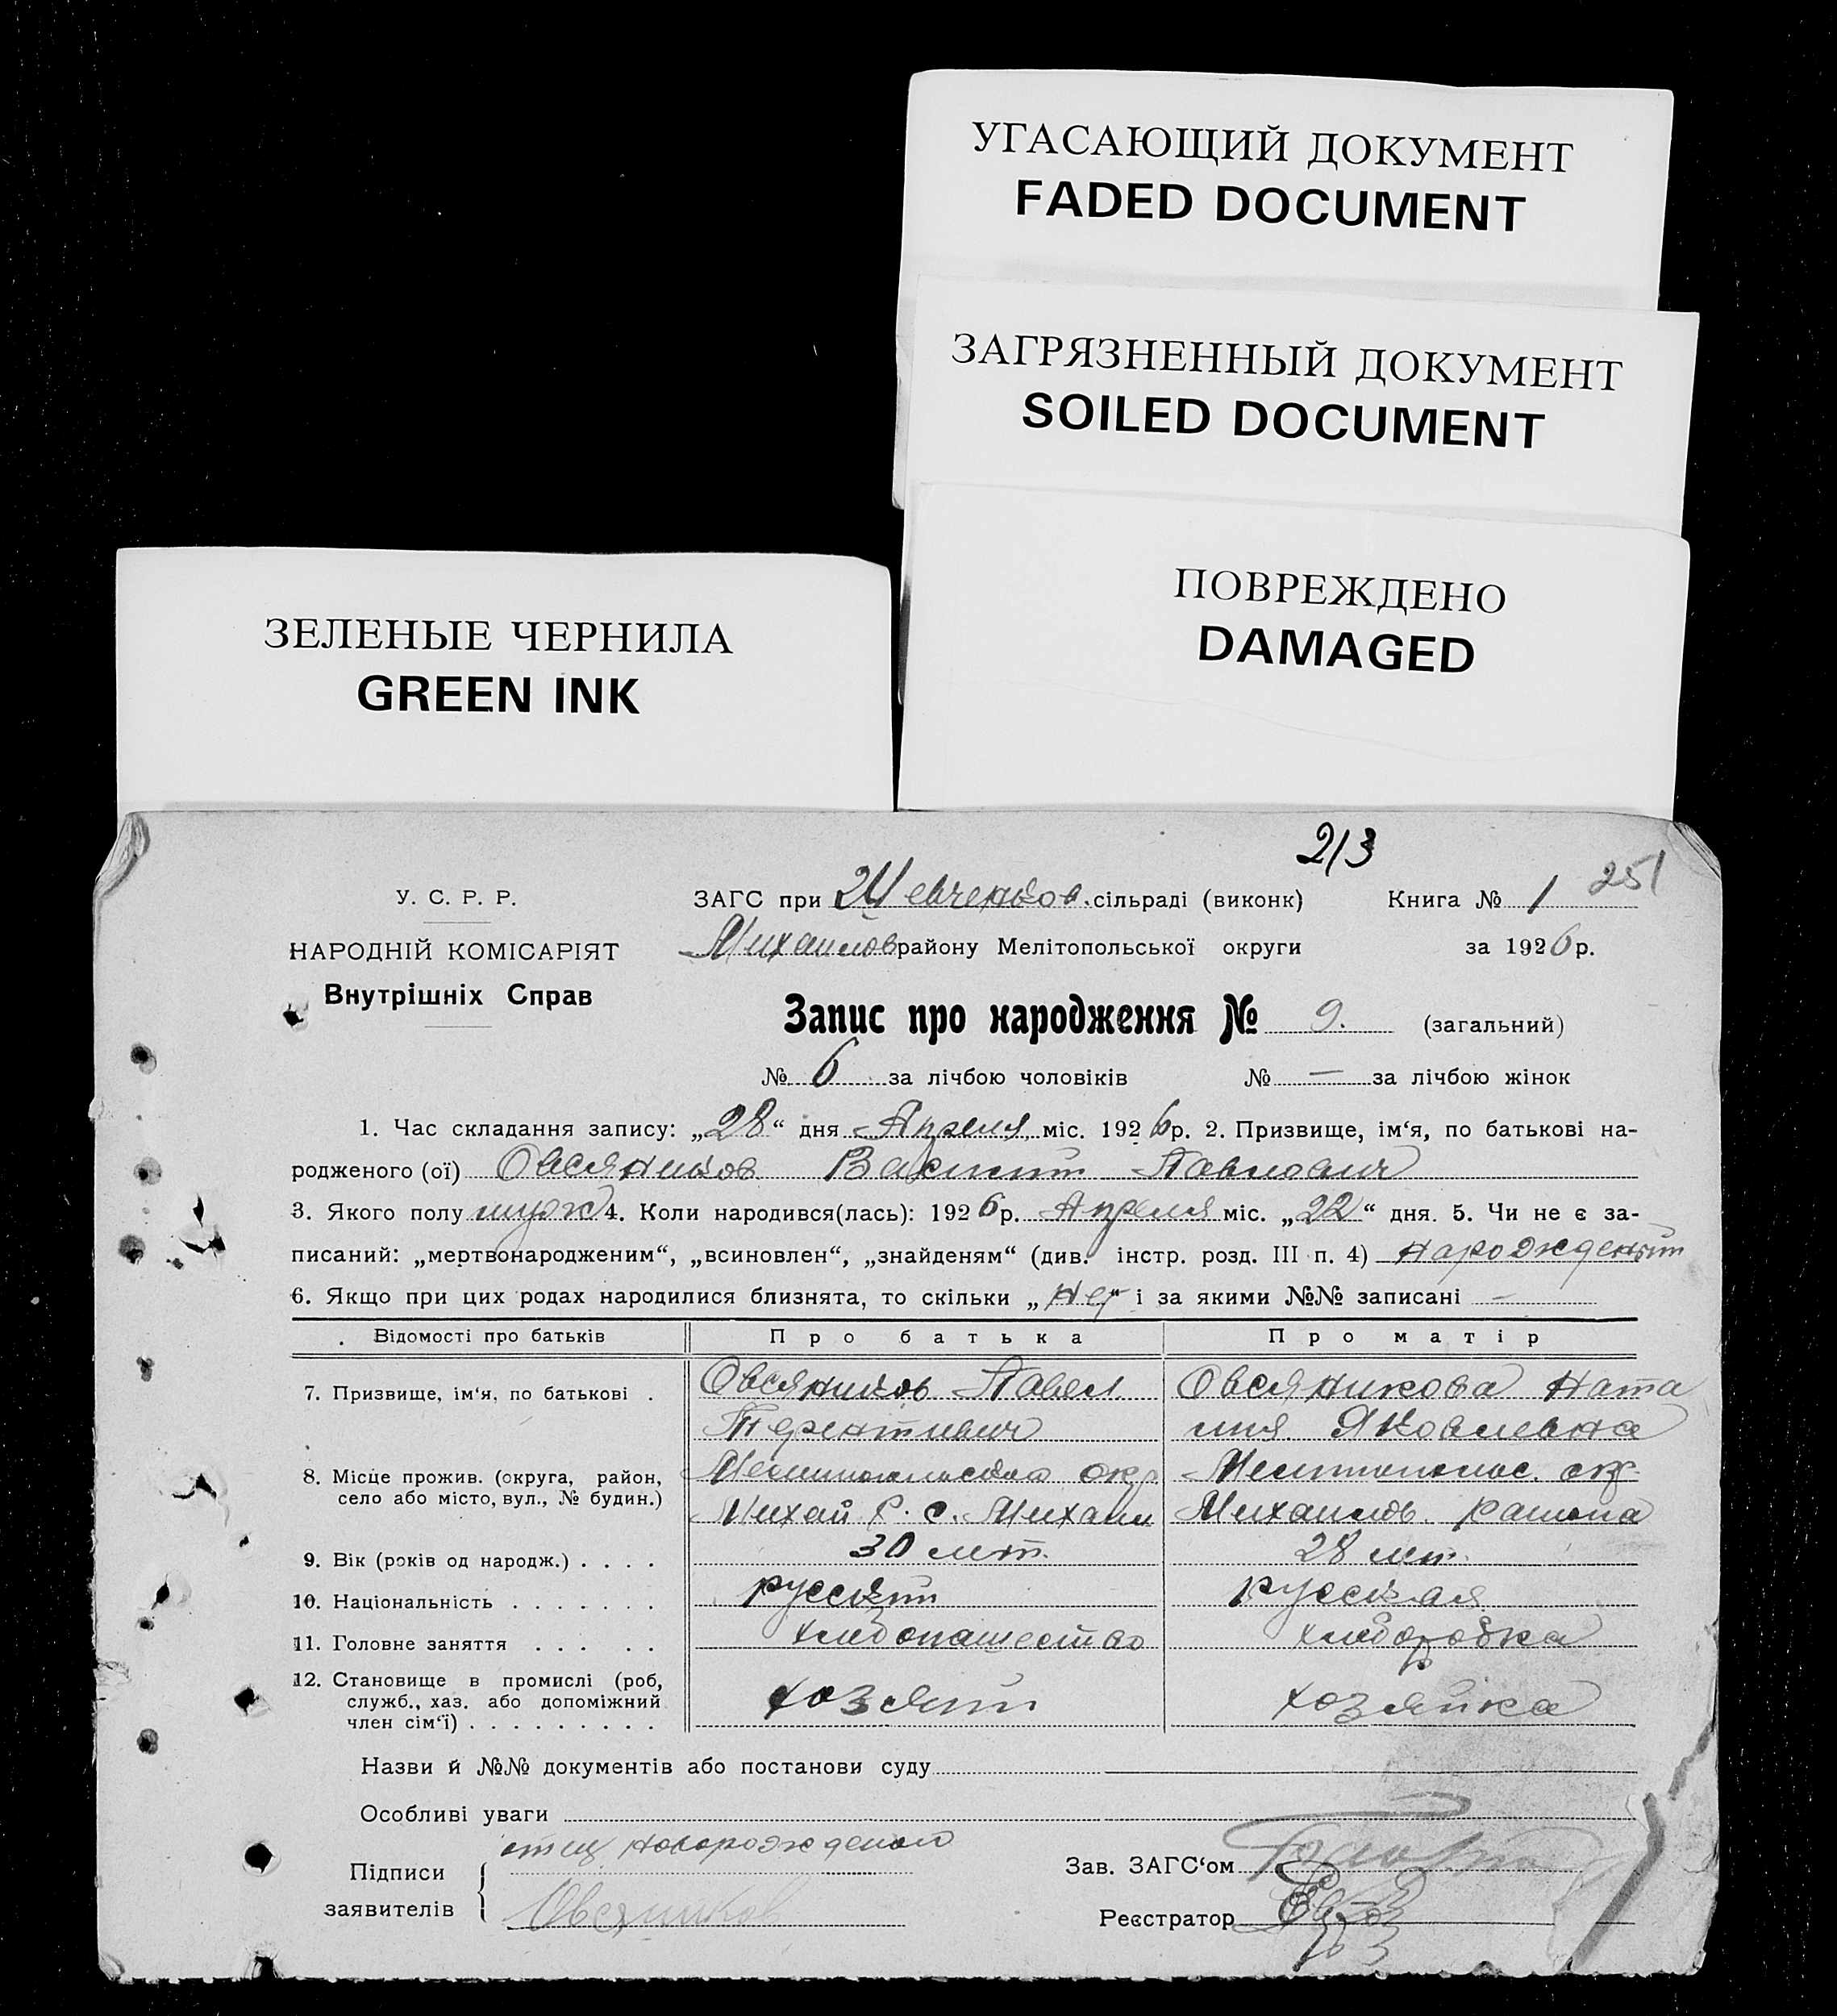 УГАСАЮЩИЙ ДОКУМЕНТ
FADED DOCUMENT
ЗАГРЯЗНЕННЫЙ ДОКУМЕНТ
SOILED DOCUMENT
ПОВРЕЖДЕНО
DAMAGED
ЗЕЛЕНЫЕ ЧЕРНИЛА
GREEN INK
213
251
У. С. Р. Р.
НАРОДНІЙ КОМІСАРІЯТ
Внутрішніх Справ
ЗАГС при Шевченков. сільраді (виконк) Книга № 1
Михайлов району Мелітопольської округи за 1926р.
Запис про народження № 9. (загальний)
№ 6 за лічбою чоловіків № — за лічбою жінок
1. Час складання запису: „28“ дня Апреля міс. 1926р. 2. Призвище, ім‘я, по батькові на-
родженого (ої) Овсяников Павлович
3. Якого полу муж 4. Коли народився(лась): 1926р. Апреля міс. „22“ дня. 5. Чи не є за-
писаний: „мертвонародженим“, „всиновлен“, „знайденям“ (див. інстр. розд. III п. 4)
6. Якщо при цих родах народилися близнята, то скільки „нет“ і за якими №№ записані —
Відомості про батьків Про батька Про матір
7. Призвище, ім‘я, по батькові . Овсяников Павел Овсяникова Ната
Терентиевич лия Яковлевна
8. Місце прожив. (округа, район, село або місто, вул., № будин.) окр. Мелитополис. окр.
Михай Р. с. Михайл Михайлов. района
9. Вік (років од народж.) . . . . 30 лет. 28 лет.
10. Національність . . . . . . . русский русская
11. Головне заняття . . . . . хлебопашество хлеборобка
12. Становище в промислі (роб, служб., хаз. або допоміжний член сім‘ї) . . . . . . . . . хозяин хозяйка
Назви й №№ документів або постанови суду
Особливі уваги
отец
Підписи заявителів Овсяников
Зав. ЗАГС‘ом
Реєстратор